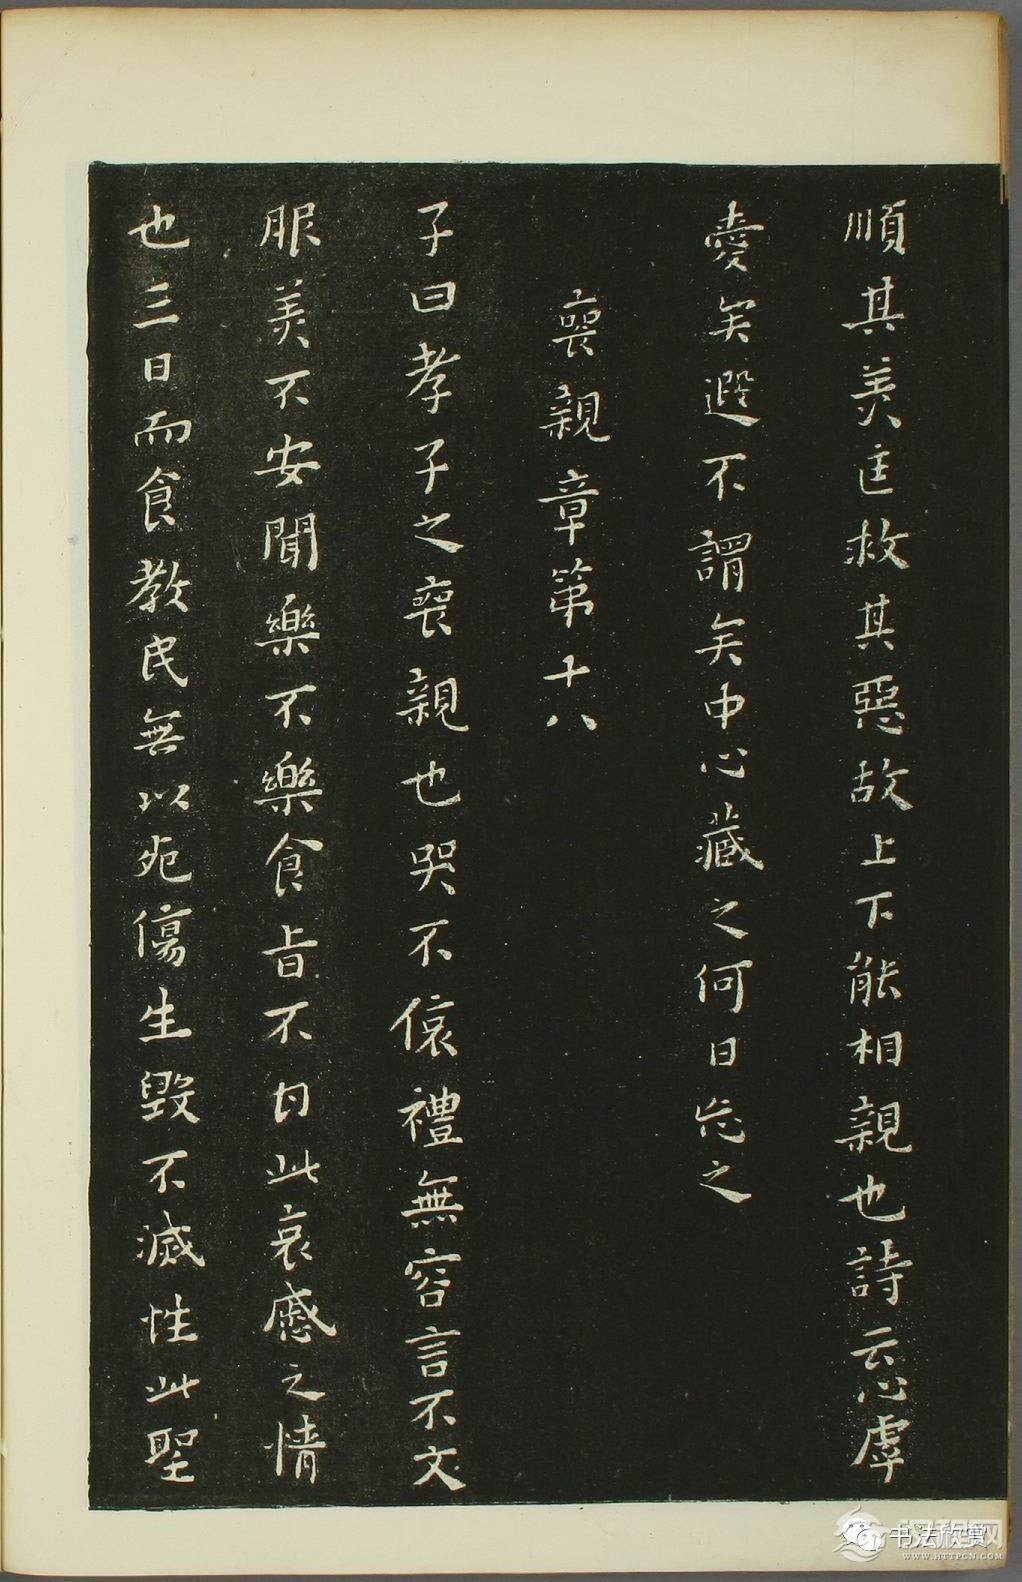 順其美匡救其惡故上下能相親也詩云心虖
愛矣遐不謂矣中心藏之何日忘之
喪親章第十八
子曰孝子之喪親也哭不偯禮無容言不文
服美不安聞樂不樂食旨不甘此哀慼之情
也三日而食教民無以死傷生毀不滅性此聖
汉程网
书法欣赏
WWW.HTTPCN.COM